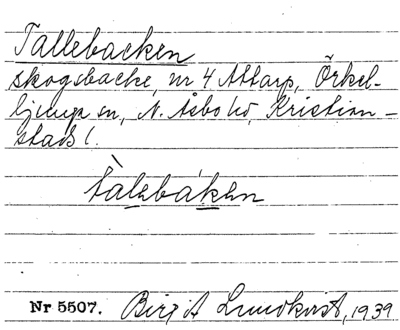 Tallebacken
skogsbacke, nr 4 Attarp, Örkel-
ljunga sn, N. Åsbo hd, Kristian-
stads l.
tàlebáken
Nr 5507. Birgit Lundkvist, 1939